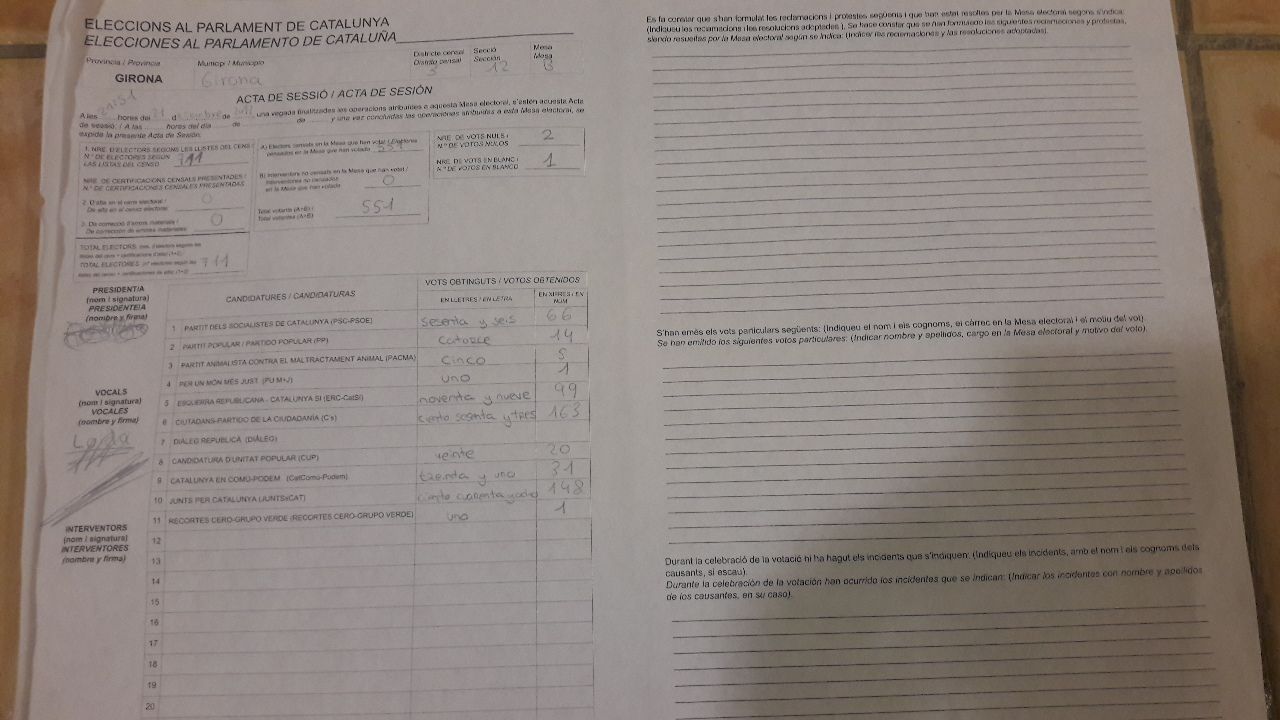 ELECCIONS AL PARLAMENT DE CATALUNYA
ELECCIONES AL PARLAMENTO DE CATALUÑA
Província / Provincia
Municipi / Municipio
Districte censal
Distrito censal
Secció
Sección
Mesa
Mesa
GIRONA
Girona
3
12
B
ACTA DE SESSIÓ / ACTA DE SESIÓN
A les hores del 21 de de una vegada finalitzades les operacions atribuïdes a aquesta Mesa electoral, s'estén aquesta Acta
de sessió. / A las hores del día de de y una vez concluidas las operaciones atribuidas a esta Mesa electoral, se
expide la presente Acta de Sesión:
1. NRE. D'ELECTORS SEGONS LES LLISTES DEL CENS /
N.º DE ELECTORES SEGÚN
LAS LISTAS DEL CENSO
711
NRE. DE CERTIFICACIONS CENSALS PRESENTADES /
N.º DE CERTIFICACIONES CENSALES PRESENTADAS
2. D'alta en el cens electoral /
De alta en el censo electoral
0
3. De correcció d'errors materials /
De corrección de errores materiales
0
TOTAL ELECTORS
TOTAL ELECTORES
711
A) Electors censats en la Mesa que han votat / Electores
censados en la Mesa que han votado
551
B) Interventors no censats en la Mesa que han votat /
Interventores no censados
en la Mesa que han votado
0
Total votants (A+B) /
Total votantes (A+B)
551
NRE. DE VOTS NULS /
N.º DE VOTOS NULOS
2
NRE. DE VOTS EN BLANC /
N.º DE VOTOS EN BLANCO
1
PRESIDENT/A
(nom i signatura)
PRESIDENTE/A
(nombre y firma)
VOCALS
(nom i signatura)
VOCALES
(nombre y firma)
INTERVENTORS
(nom i signatura)
INTERVENTORES
(nombre y firma)
CANDIDATURES / CANDIDATURAS
VOTS OBTINGUTS / VOTOS OBTENIDOS
EN LLETRES / EN LETRA
EN XIFRES / EN
NÚM
1 PARTIT DELS SOCIALISTES DE CATALUNYA (PSC-PSOE) sesenta y seis 66
2 PARTIT POPULAR / PARTIDO POPULAR (PP) catorce 14
3 PARTIT ANIMALISTA CONTRA EL MALTRACTAMENT ANIMAL (PACMA) cinco 5
4 PER UN MÓN MÉS JUST (PUM+J) uno 1
5 ESQUERRA REPUBLICANA - CATALUNYA SÍ (ERC-CatSí) noventa y nueve 99
6 CIUTADANS-PARTIDO DE LA CIUDADANÍA (C's) ciento sesenta y tres 163
7 DIÀLEG REPUBLICÀ (DIÀLEG)
8 CANDIDATURA D'UNITAT POPULAR (CUP) veinte 20
9 CATALUNYA EN COMÚ-PODEM (CatComú-Podem) treinta y uno 31
10 JUNTS PER CATALUNYA (JUNTSxCAT) ciento cuarenta y ocho 148
11 RECORTES CERO-GRUPO VERDE (RECORTES CERO-GRUPO VERDE) uno 1
12
13
14
15
16
17
18
19
20
Es fa constar que s'han formulat les reclamacions i protestes següents i que han estat resoltes per la Mesa electoral segons s'indica:
(Indiqueu les reclamacions i les resolucions adoptades). Se hace constar que se han formulado las siguientes reclamaciones y protestas,
siendo resueltas por la Mesa electoral según se indica: (Indicar las reclamaciones y las resoluciones adoptadas).
S'han emès els vots particulars següents: (Indiqueu el nom i els cognoms, el càrrec en la Mesa electoral i el motiu del vot).
Se han emitido los siguientes votos particulares: (Indicar nombre y apellidos, cargo en la Mesa electoral y motivo del voto).
Durant la celebració de la votació hi ha hagut els incidents que s'indiquen: (Indiqueu els incidents, amb el nom i els cognoms dels
causants, si escau).
Durante la celebración de la votación han ocurrido los incidentes que se indican: (Indicar los incidentes con nombre y apellidos
de los causantes, en su caso).